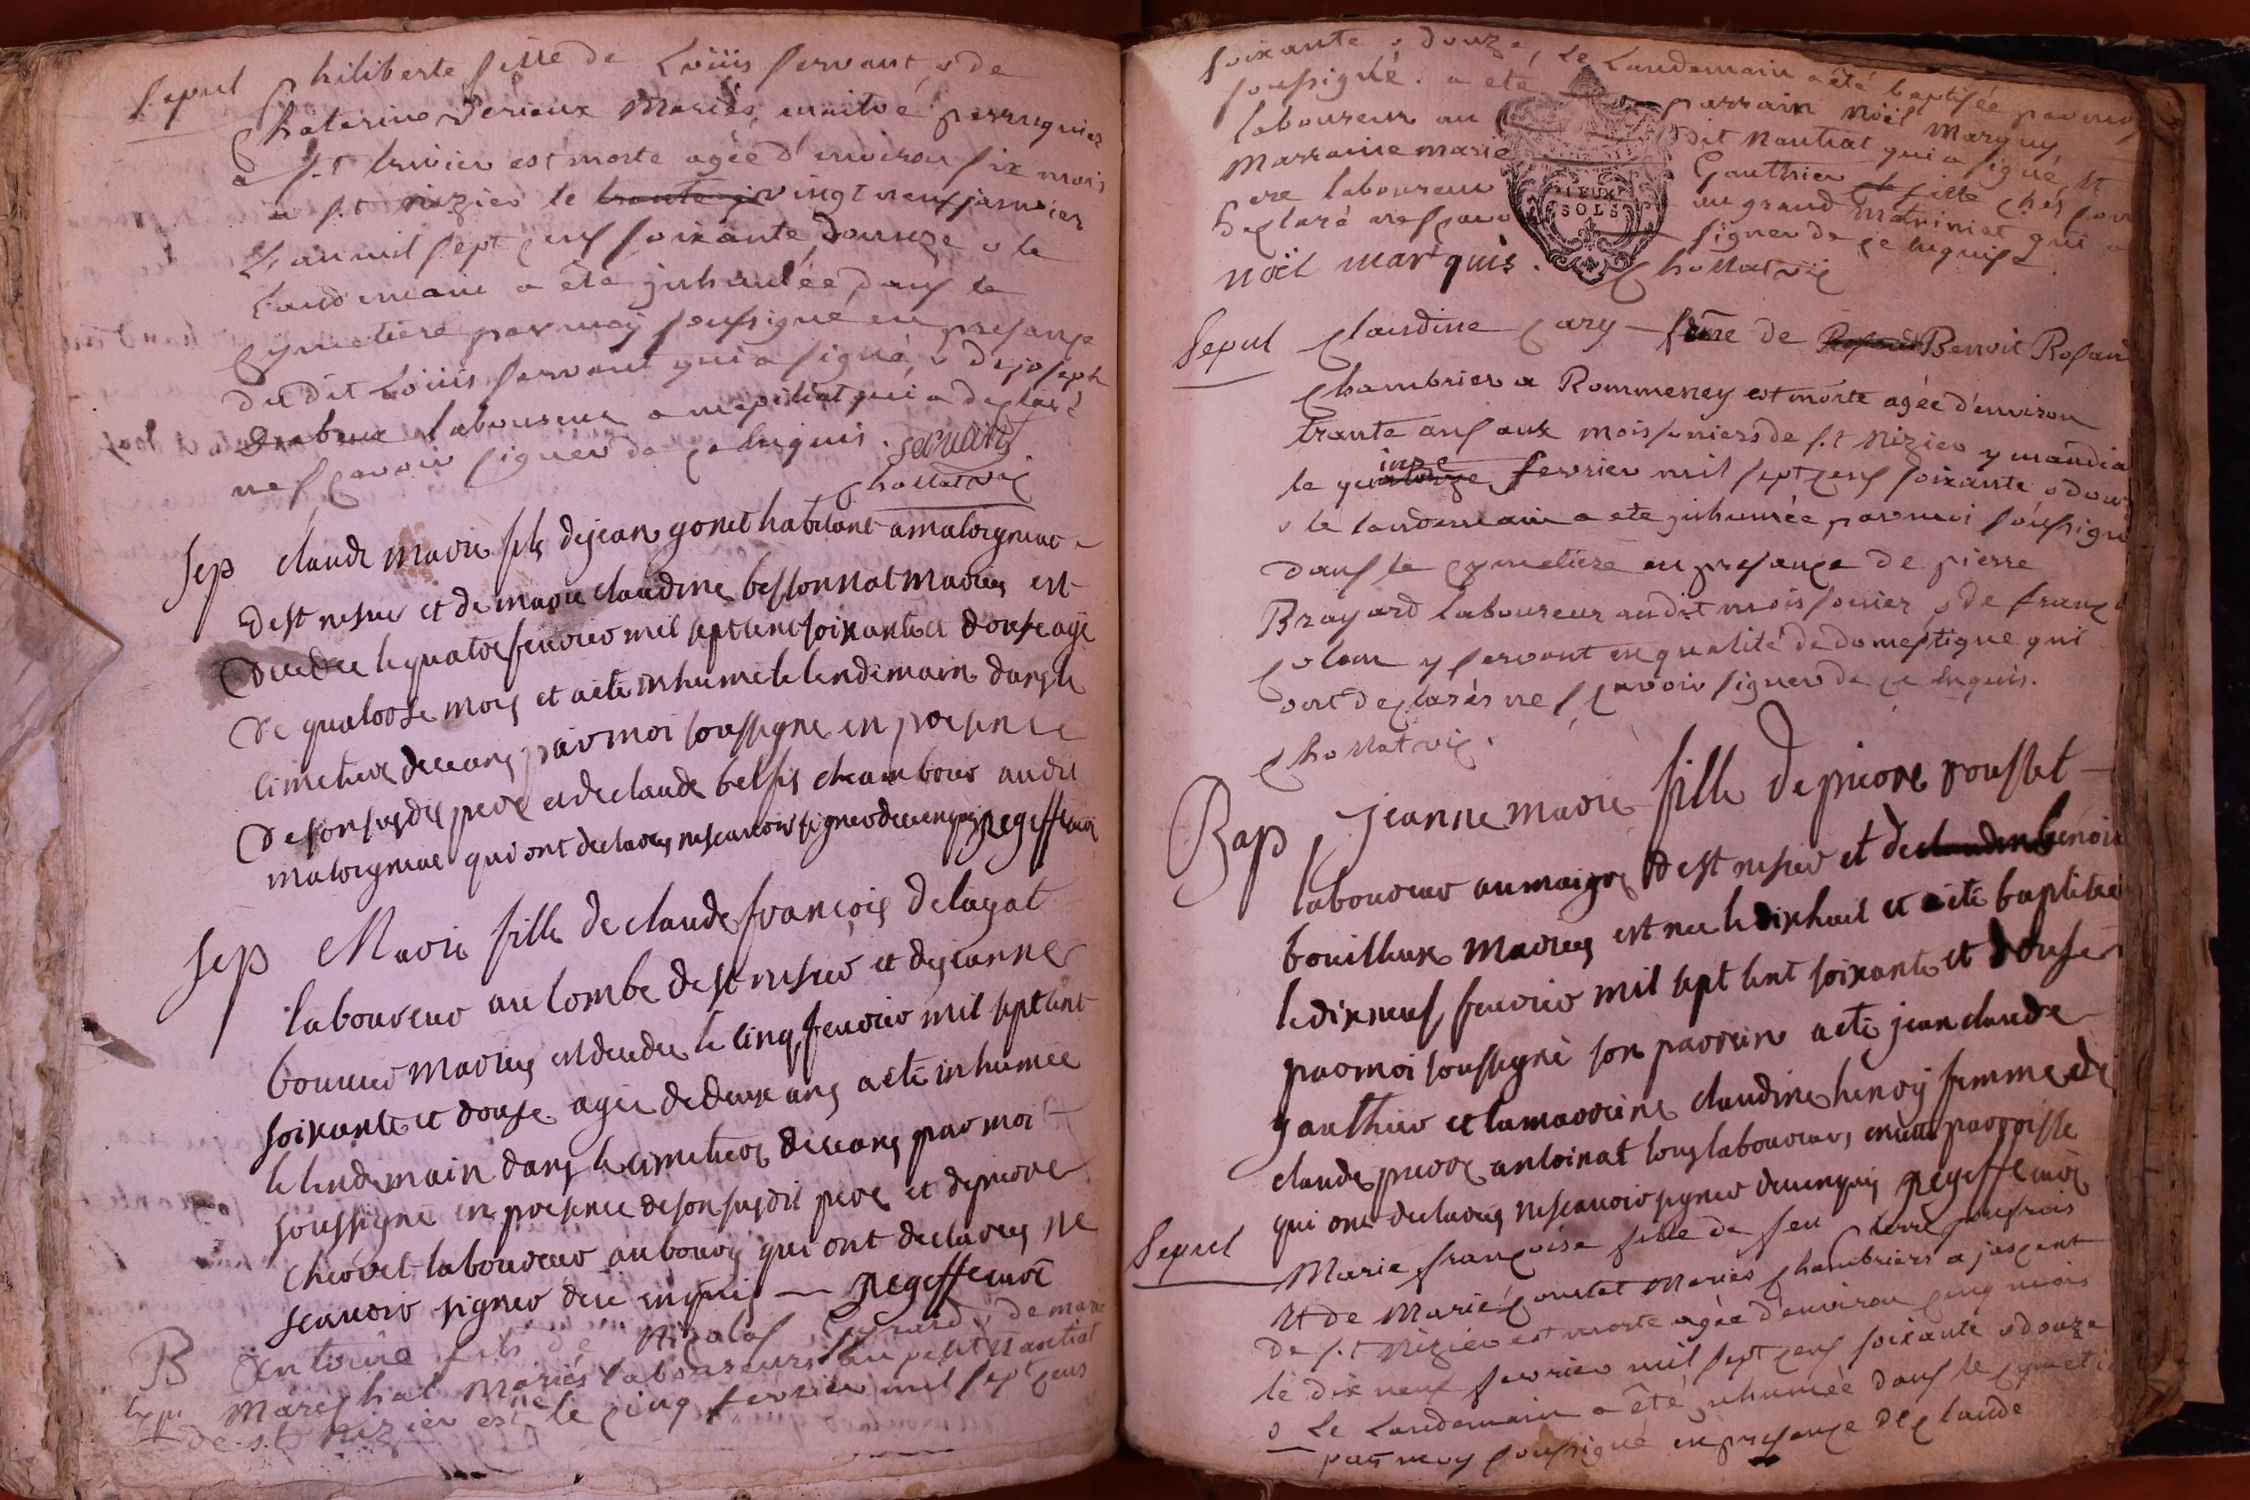 Sepul Philiberte fille de Loüis servant & de
Chaterine Perieux Mariés, perruquier
a S.t trivier est morte agée d'environ six mois
a S.t nizier le vingt neuf janvier
L'an mil sept cens soixante, douze & le
Landemain a été inhumée, dans le
Cymetiere par moy soussigné en presance
du dit Loüis servant qui a signé, & de joseph
laboureur a qui a declaré
ne sçavoir signer de ce enquis. servant
Chollat vic
Sep claude marie fils de jean gonet habitant a malvigneur
de st nesier et de marie claudine bessonnat maries est
decede le quatre feuvrier mil sept cent soixante et douse age
de quatorse mois et a ete inhume le lendemain dans le
cimetiere de ceans par moi soussigné en presence
de son susdit pere et de claude belfis au dit
qui ont declares ne scauoir signer de ce enquis
Sep Marie fille de claude françois delayat
laboureur au lombe de st nesier et de jeanne
bouvier maries est decedee le cinq feuvrier mil sept cent
soixante et douse agee de deux ans a ete inhumee
le lendemain dans le cimetiere de ceans par moi
soussigné en presence de son susdit pere et de pierre
laboureur au bourg qui ont declares ne
scauoir signer de ce enquis
B Antoine fils de Nicolas & de marie
Mareschal Mariés laboureurs au petit Nantiat
de S.t Nizier est né le cinq fevrier mil sept cens
soixante & douze, Le Landemain a été baptisée par moy
soussigné. a été parrain Noël Marquy
laboureur au dit Nantiat qui a signé, &
Marraine marie Gauthier fille chés son
ere laboureur au grand Matriniat qui a
declaré ne sçavoir signer de ce enquise.
noël marquis. Chollat vic
Sepul Claudine Cary fame de Benoit Rosand
Chambrier a Rommenay est morte agée d'environ
trante ans aux moissoniers de S.t Nizier y mandian
le quinze fevrier mil sept cens soixante & douze
& le landemain a été inhumée par moi soussigné
dans le cymetiere en presance de pierre
Brayard laboureur au dit moissonier, & de françois
y servant en qualité de domestique qui
ont declarés ne sçavoir signer de ce enquis.
Chollat vic.
Bap jeanne marie fille de pierre rousset
laboureur au de st nesier et de benoite
bouilloux maries est nee le dixhuit et a ete baptisée
le dixneuf feuvrier mil sept cent soixante et douse
par moi soussigné son parrein a ete jean claude
gauthier et la marreine claudine henry femme de
claude pierre antoinat tous laboureurs en cette parroisse
qui ont declares ne scauoir signer de ce enquis
Sepul Marie françoise fille de feu pierre
& de Marie Mariés Chambriers a
de S.t Nizier est morte agée d'environ cinq mois
le dix neuf fevrier mil sept cens soixante & douze
& Le Landemain a été inhumée dans le cymetiere
par moy soussigné en presance de Claude